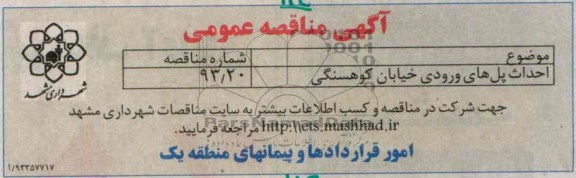 آگهی مناقصه عمومی
موضوع شماره مناقصه
احداث پل‌های ورودی خیابان کوهسنگی ۹۳/۲۰
جهت شرکت در مناقصه و کسب اطلاعات بیشتر به سایت مناقصات شهرداری مشهد
http:\\ets.mashhad.ir مراجعه فرمایید.
امور قراردادها و پیمانهای منطقه یک
شهرداری مشهد
۱/۹۳۳۵۷۷۱۷